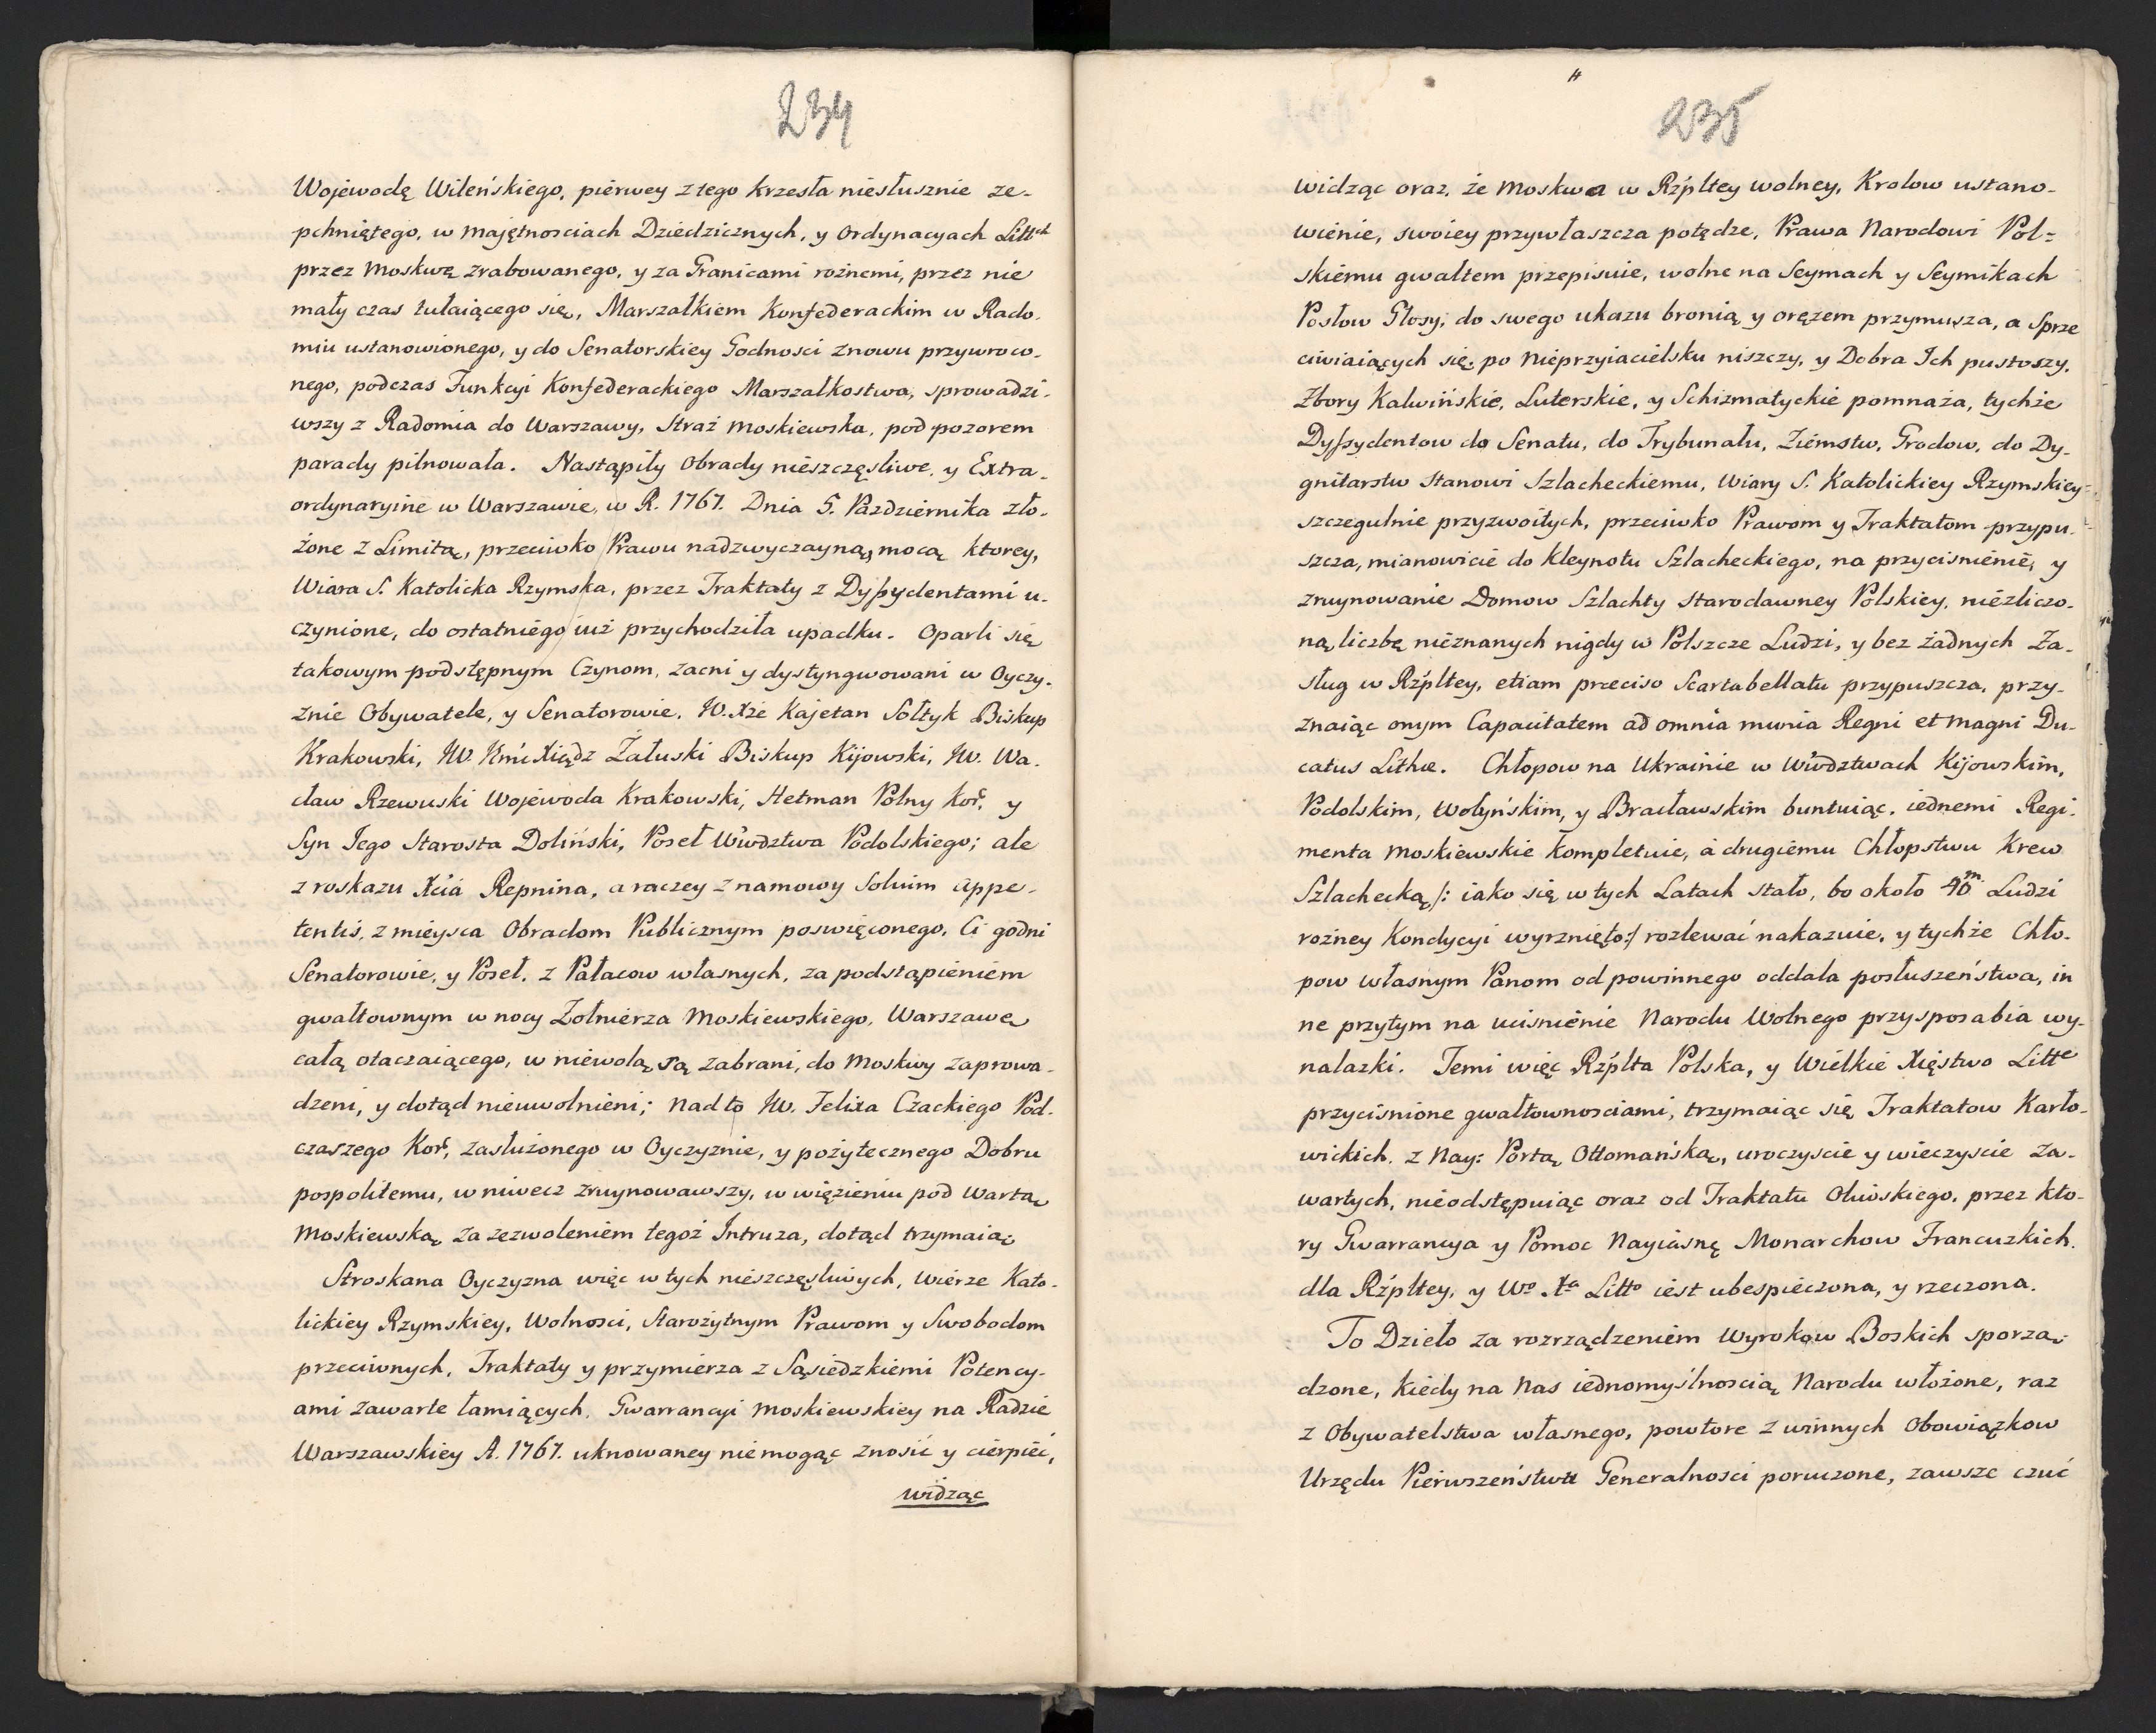 234
Wojewodę Wileńskiego, pierwey z tego krzesła niesłusznie ze-
pchniętego, w majętnosciach Dziedzicznych, y Ordynacyach Littch
przez Moskwę zrabowanego, y za Granicami rożnemi, przez nie
mały czas tułaiącego się, Marszałkiem Konfederackim w Rado-
miu ustanowionego, y do Senatorskiey Godnosci znowu przywroco-
nego, podczas Funkcyi Konfederackiego Marszałkostwa, sprowadzi-
wszy z Radomia do Warszawy, Straż Moskiewska, pod pozorem
parady pilnowała. Nastąpiły Obrady nieszczęsliwe, y Extra-
ordynaryine w Warszawie, w R. 1767. Dnia 5. Pazdziernika zło-
żone z Limitą, przeciwko Prawu nadzwyczayną, mocą ktorey,
Wiara S. Katolicka Rzymska, przez Traktaty z Dyssydentami u-
czynione, do ostatniego już przychodziła upadku. Oparli się
takowym podstępnym Czynom, zacni y dystyngwowani w Oyczy-
znie Obywatele, y Senatorowie, W. Xże Kajetan Sołtyk Biskup
Krakowski, JW. Jmć Xiądz Załuski Biskup Kijowski, JW. Wa-
cław Rzewuski Wojewoda Krakowski, Hetman Polny Kor. y
Syn Jego Starosta Doliński, Poseł Wwdztwa Podolskiego; ale
z roskazu Xcia Repnina, a raczey z namowy Solium appe-
tentis, z mieysca Obradom Publicznym poswięconego, Ci godni
Senatorowie, y Poseł, z Pałacow własnych, za podstąpieniem
gwałtownym w nocy Żołnierza Moskiewskiego, Warszawę
całą otaczaiącego, w niewolą są zabrani, do Moskwy zaprowa-
dzeni, y dotąd nieuwolnieni; nadto JW. Felixa Czackiego Pod-
czaszego Kor. zasłużonego w Oyczyznie, y pożytecznego Dobru
pospolitemu, w niwecz zruynowawszy, w więzieniu pod Wartą
Moskiewską, za zezwoleniem tegoż Intruza, dotąd trzymaią.
Stroskana Oyczyzna więc w tych nieszczęsliwych, Wierze Kato-
lickiey Rzymskiey, Wolnosci, Starożytnym Prawom y Swobodom
przeciwnych, Traktaty y przymierza z Sąsiedzkiemi Potency-
ami zawarte łamiących, Gwarrancyi Moskiewskiey na Radzie
Warszawskiey A. 1767. uknowaney nie mogąc znosić y cierpieć,
widząc
235
widząc oraz, że Moskwa w Rżpltey wolney, Krolow ustano-
wienie, swoiey przywłaszcza potędze, Prawa Narodowi Pol=
skiemu gwałtem przepisuie, wolne na Seymach y Seymikach
Posłow Głosy, do swego ukazu bronią y orężem przymusza, a Sprze
ciwiaiących się, po nieprzyiacielsku niszczy, y Dobra Ich pustoszy,
Zbory Kalwińskie, Luterskie, y Schizmatyckie pomnaża, tychże
Dyssydentow do Senatu, do Trybunału, Ziemstw, Grodow, do Dy-
gnitarstw Stanowi Szlacheckiemu, Wiary S. Katolickiey Rzymskiey
szczegulnie przyzwoitych, przeciwko Prawom y Traktatom przypu-
szcza, mianowicie do kleynotu Szlacheckiego, na przycisnienie, y
zruynowanie Domow Szlachty starodawney Polskiey, niezliczo-
ną liczbę nieznanych nigdy w Polszcze Ludzi, y bez żadnych Za-
sług w Rżpltey, etiam præciso Scartabellatu przypuszcza, przy-
znaiąc onym Capacitatem ad omnia munia Regni et Magni Du-
catus Lithæ. Chłopow na Ukrainie w Wwdztwach Kijowskim,
Podolskim, Wołyńskim, y Bracławskim buntuiąc, iednemi Regi-
menta Moskiewskie kompletuie, a drugiemu Chłopstwu Krew
Szlachecką /: iako się w tych Latach stało, bo około 40m Ludzi
rożney Kondycyi wyrznięto :/ rozlewać nakazuie, y tychże Chło-
pow własnym Panom od powinnego oddala posłuszeństwa, in
ne przytym na ucisnienie Narodu Wolnego przysposabia wy-
nalazki. Temi więc Rżplta Polska, y Wielkie Xięstwo Litte
przycisnione gwałtownosciami, trzymaiąc się Traktatow Karło-
wickich, z Nay: Portą Ottomańską, uroczyscie y wieczyscie za-
wartych, nieodstępuiąc oraz od Traktatu Oliwskiego, przez kto-
ry Gwarrancya y Pomoc Nayiasnę Monarchow Francuzkich,
dla Rżpltey, y Wo Xa Litto iest ubespieczona, y rzeczona.
To Dzieło za rozrządzeniem Wyrokow Boskich sporzą-
dzone, kiedy na Nas iednomyślnoscią Narodu włożone, raz
z Obywatelstwa własnego, powtore z winnych Obowiązkow
Urzędu Pierwszeństwa Generalnosci poruczone, zawsze czuć